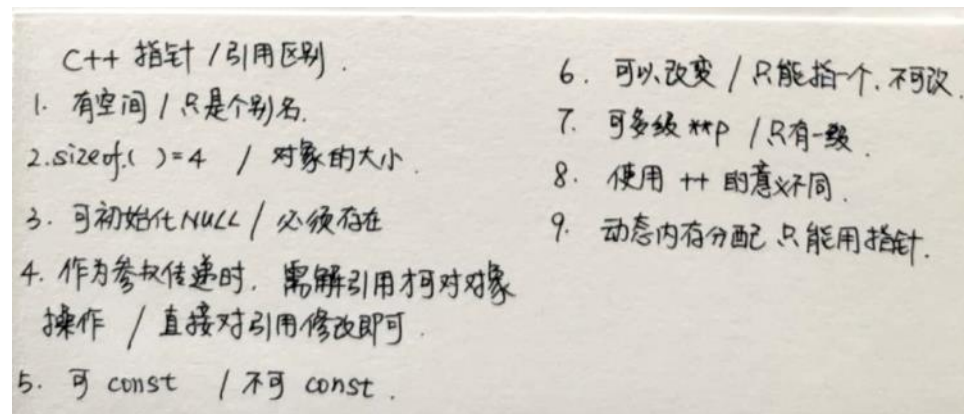 C++ 指针 / 引用区别.
1. 有空间 / 只是个别名.
2. sizeof.( )=4 / 对象的大小.
3. 可初始化NULL / 必须存在
4. 作为参数传递时, 需解引用才可对对象
操作 / 直接对引用修改即可.
5. 可 const / 不可 const.
6. 可以改变 / 只能指一个, 不可改.
7. 可多级 **p / 只有一级.
8. 使用 ++ 的意义不同.
9. 动态内存分配只能用指针.